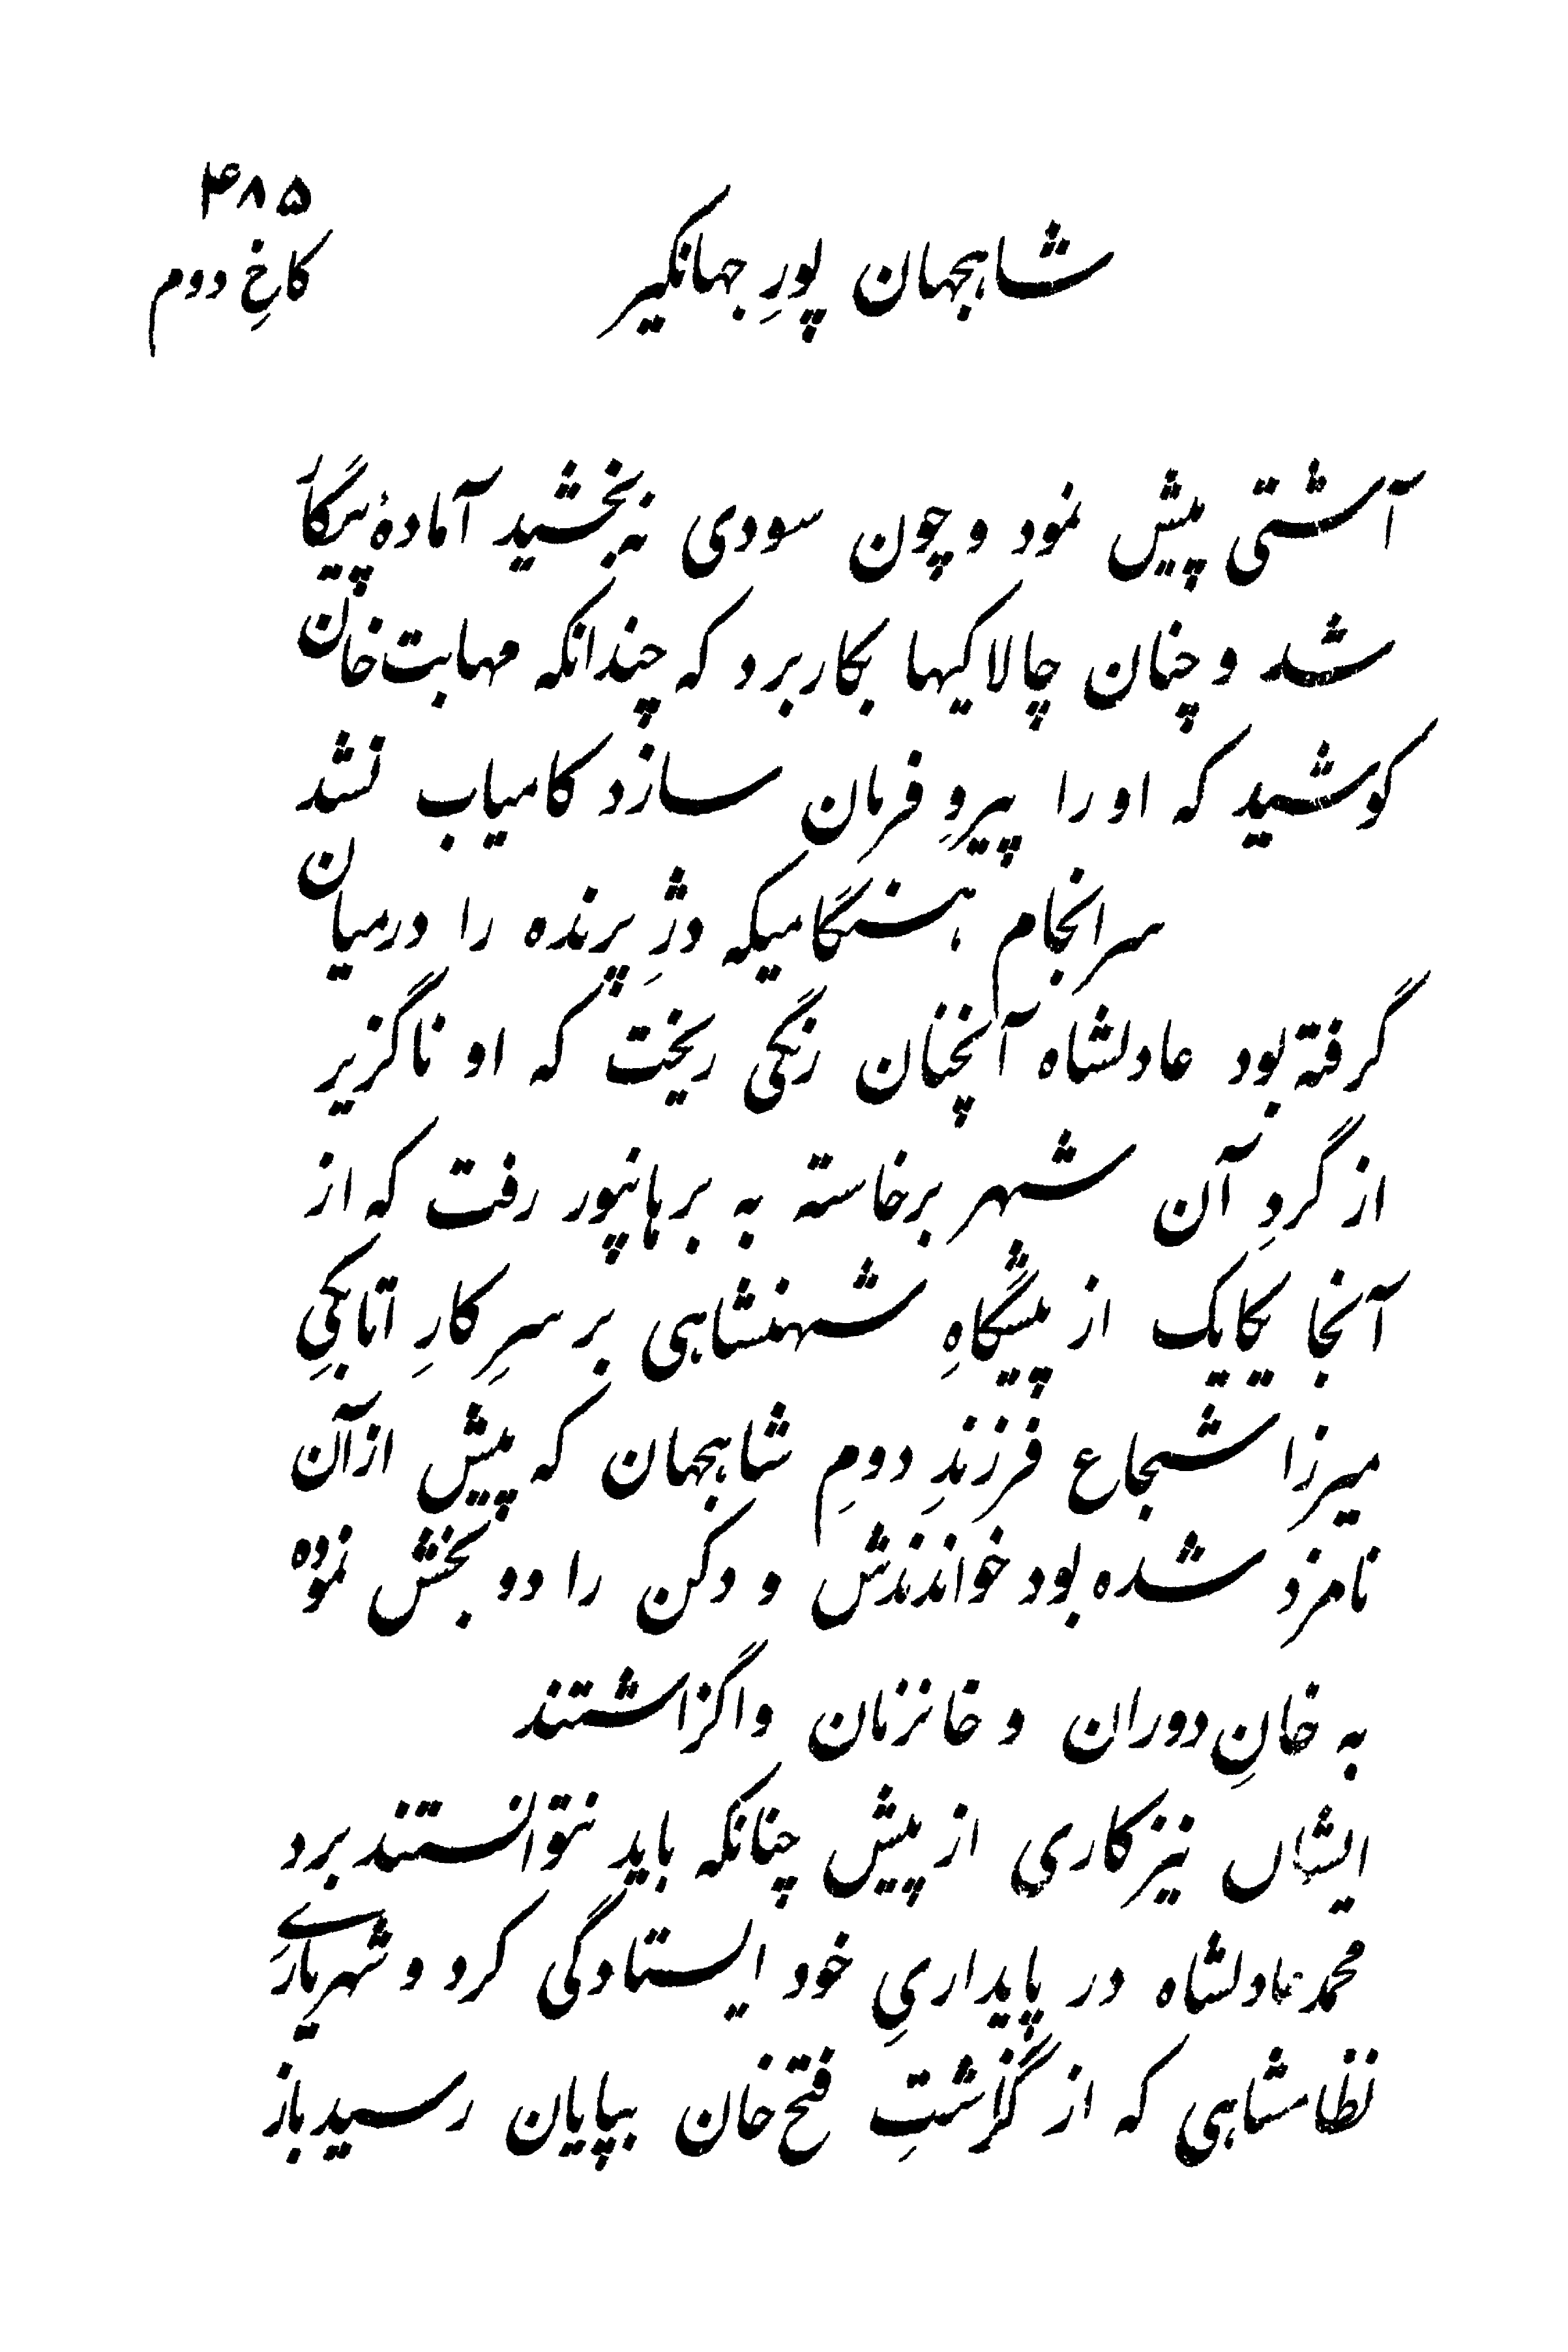 ۴۸۵
شاهجهان پورِ جهانگیر
کاخِ دوم
آشتی پیش نمود و چون سودی نه بخشید آمادهٔ پیکار
شد و چنان چالاکیها بکار برد که چندانکه مهابت خان
کوشید که او را پیروِ فرمان سازد کامیاب نشد
سرانجام هنگامیکه دژِ پرنده را درمیان
گرفته بود عادلشاه آنچنان رنگی ریخت که او ناگزیر
از گردِ آن شهر برخاسته به برهانپور رفت که از
آنجا یکایک از پیشگاهِ شهنشاهی بر سرِ کارِ اتابکیِ
میرزا شجاع فرزندِ دومِ شاهجهان که پیش از آن
نامزد شده بود خواندندش و دکن را دو بخش نموده
به خانِ دوران و خانزمان واگزاشتند
ایشان نیز کاری از پیش چنانکه باید نتوانستند برد
محمد عادلشاه در پایداریِ خود ایستادگی کرد و شهریاریِ
نظامشاهی که از گزاشتِ فتح خان بپایان رسید باز